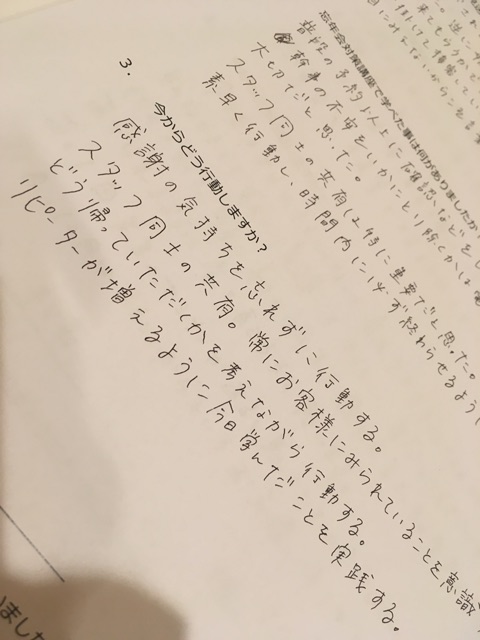 忘年会対策講座で学べた事は何がありましたか
普段の予約以上に確認などをし
幹事の不安をいかにとり除くかは
大切だと思った。
スタッフ同士の共有は特に重要だと思った。
素早く行動し、時間内に必ず終わらせるように
3.
今からどう行動しますか?
感謝の気持ちを忘れずに行動する。
スタッフ同士の共有。常にお客様にみられていることを意識
どう帰っていただくかを考えながら行動する。
リピーターが増えるように今日学んだことを実践する。
ました